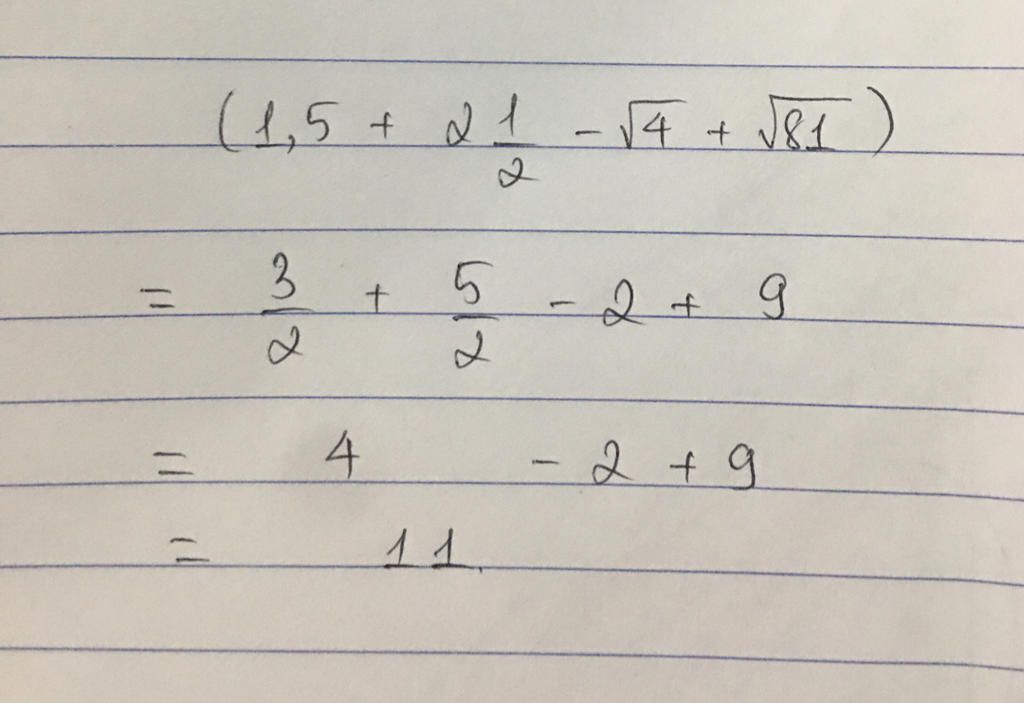 (1,5 + 2 1/2 - √4 + √81)
= 3/2 + 5/2 - 2 + 9
= 4 - 2 + 9
= 11.